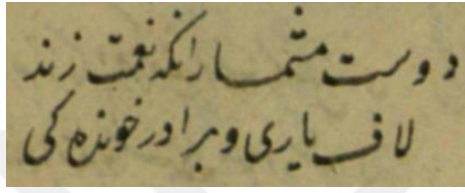 دوست مشمار آنکه در نعمت زند
لاف یاری و برادر خوندگی